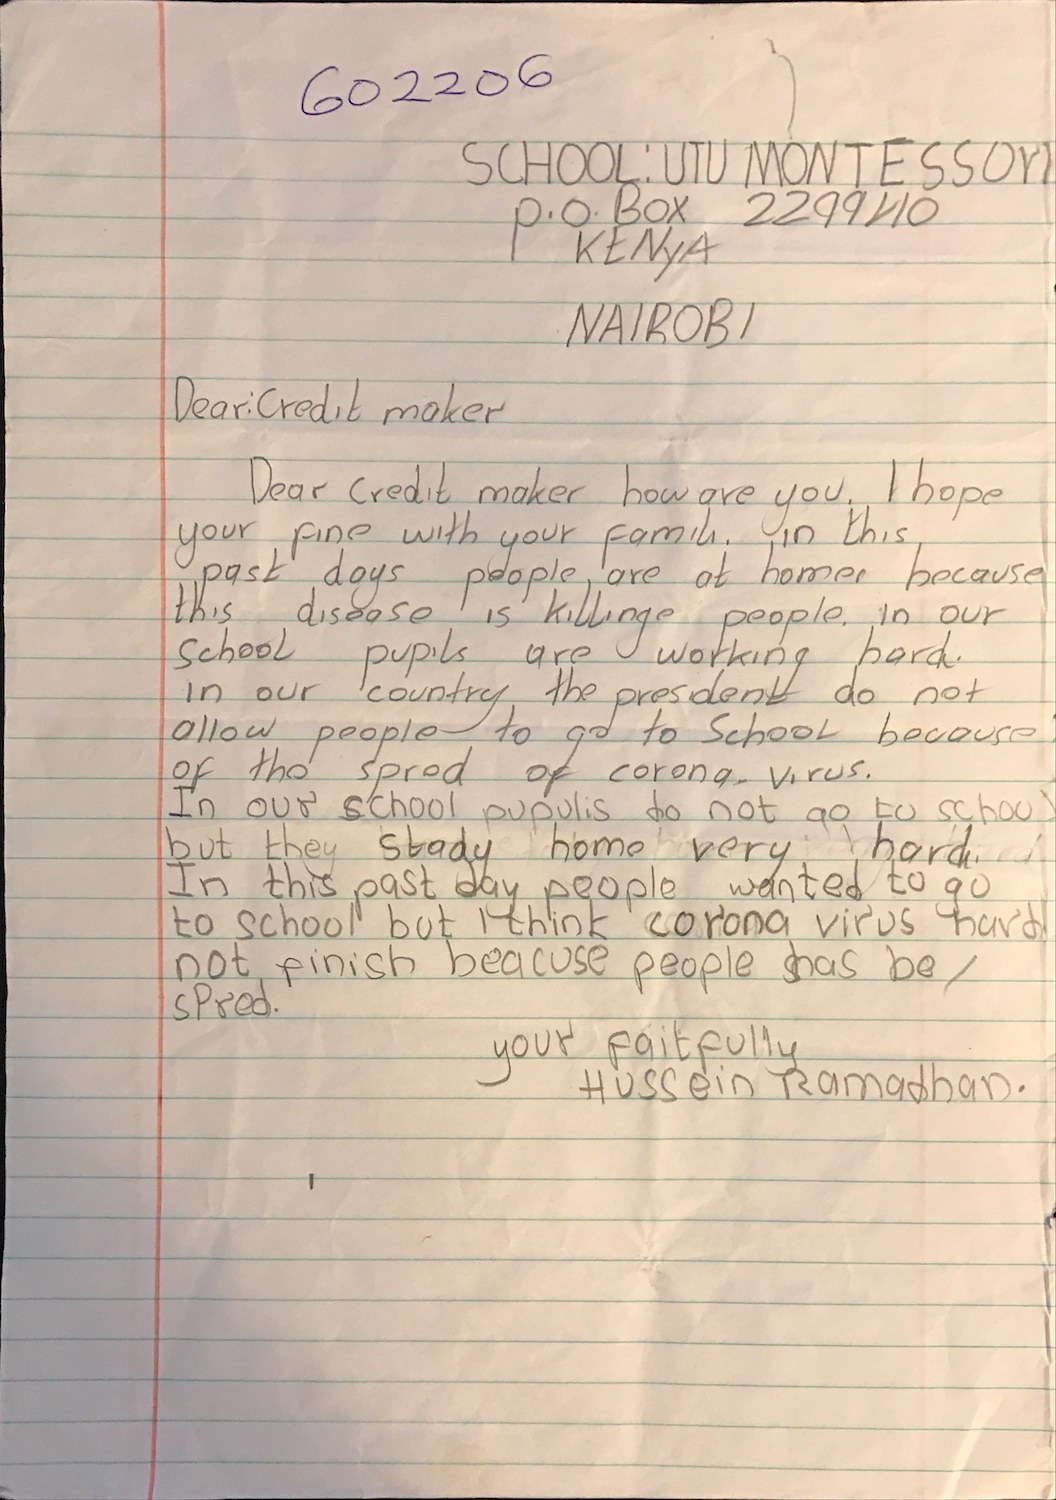 602206
SCHOOL: UTU MONTESSORI
P.O. Box 2299410
KENyA
NAIROBI
Dear: Credit maker
Dear credit maker how are you. I hope
your fine with your famili. in this
past days people are at homes because
this disease is killinge people. in our
school pupils are working hard.
in our country the president do not
allow people to go to School because
of the spred of corona- virus.
In our school pupulis do not go to school
but they stady home very hard.
In this past day people wanted to go
to school but I think corona virus hard
not finish beacuse people has be
spred.
your faitfully
Hussein Ramadhan.